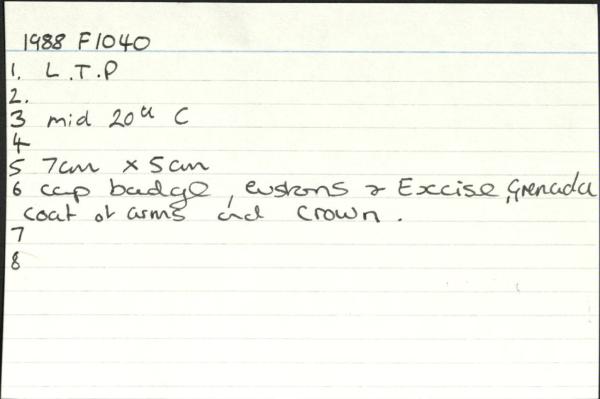 1988 F1040
1. L.T.P
2.
3 mid 20th C
4
5 7cm x 5cm
6 cap badge, customs & Excise, Grenada
coat of arms and crown.
7
8